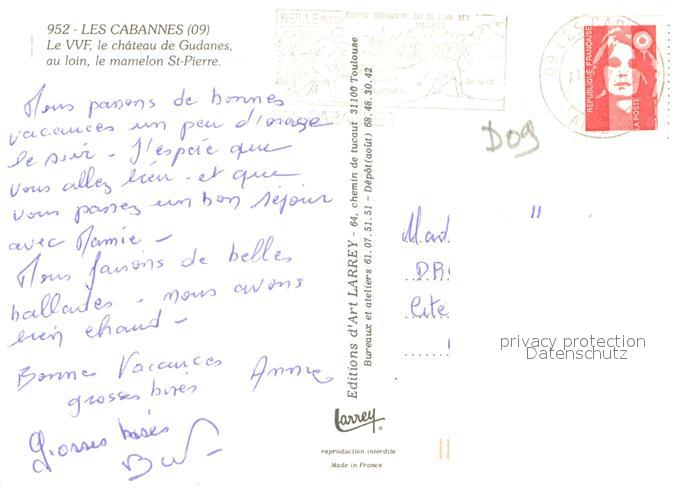 952 - LES CABANNES (09)
Le VVF, le château de Gudanes,
au loin, le mamelon St-Pierre.
Nous passons de bonnes
vacances un peu d'orage
le soir - J'espère que
vous allez bien - et que
vous passez un bon séjour
avec Mamie -
Nous faisons de belles
ballades - nous avons
bien chaud -
Bonnes Vacances Annie
grosses bises
Grosses bises
Editions d'Art LARREY - 64, chemin de tucaut 31100 Toulouse
Bureaux et ateliers 61.07.51.51 - Dépôt (août) 68.48.30.42
Larrey
reproduction interdite
Made in France
09 LES CAB
RÉPUBLIQUE FRANÇAISE
LA POSTE
D09
"
Mad
DR
Cite
privacy protection
Datenschutz